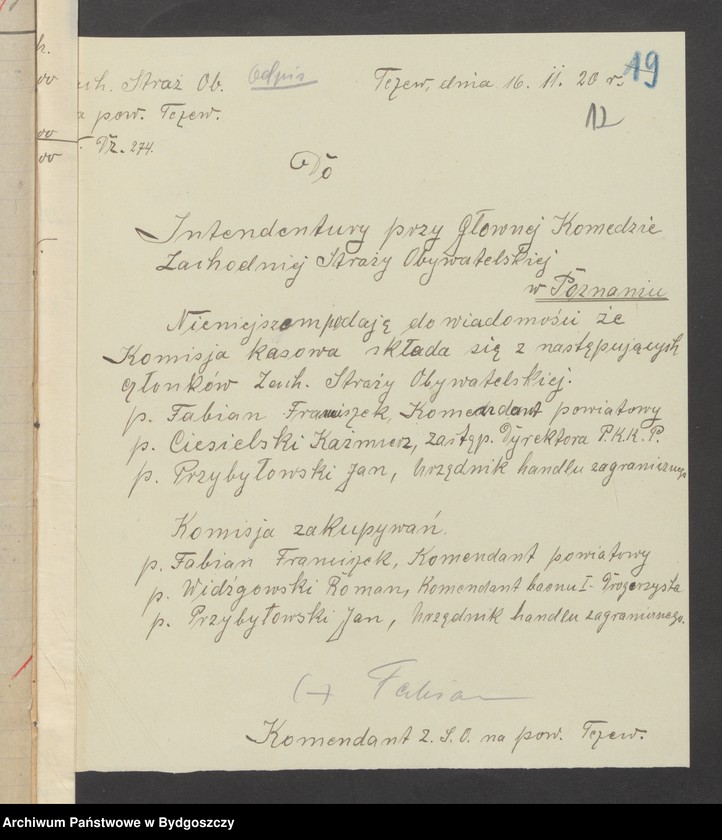 ach. Straż Ob. Odpis Tczew, dnia 16. II. 20 r. 19
a pow. Tczew. 12
Dz. 274.
Do
Intendentury przy Głownej Komedzie
Zachodniej Straży Obywatelskiej
w Poznaniu
Nieniejszem podają do wiadomości że
Komisja kasowa składa się z następujących
członków Zach. Straży Obywatelskiej.
p. Fabian Franciszek, Komendant powiatowy
p. Ciesielski Kaźmierz, zastęp. Dyrektora P.K.K.P.
p. Przybyłowski Jan, Urzędnik handlu zagranicznego
Komisja zakupywań.
p. Fabian Franciszek, Komendant powiatowy
p. Widźgowski Roman, Komendant baonu I- Drogerzysta
p. Przybyłowski Jan, Urzędnik handlu zagranicznego.
(-) Fabian
Komendant Z. S. O. na pow. Tczew.
Archiwum Państwowe w Bydgoszczy